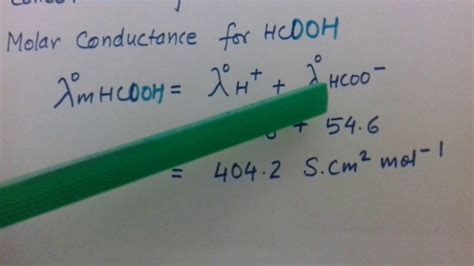 Molar Conductance for HCOOH
λ°mHCOOH = λ°H⁺ + λ°HCOO⁻
+ 54.6
= 404.2 S.cm² mol⁻¹